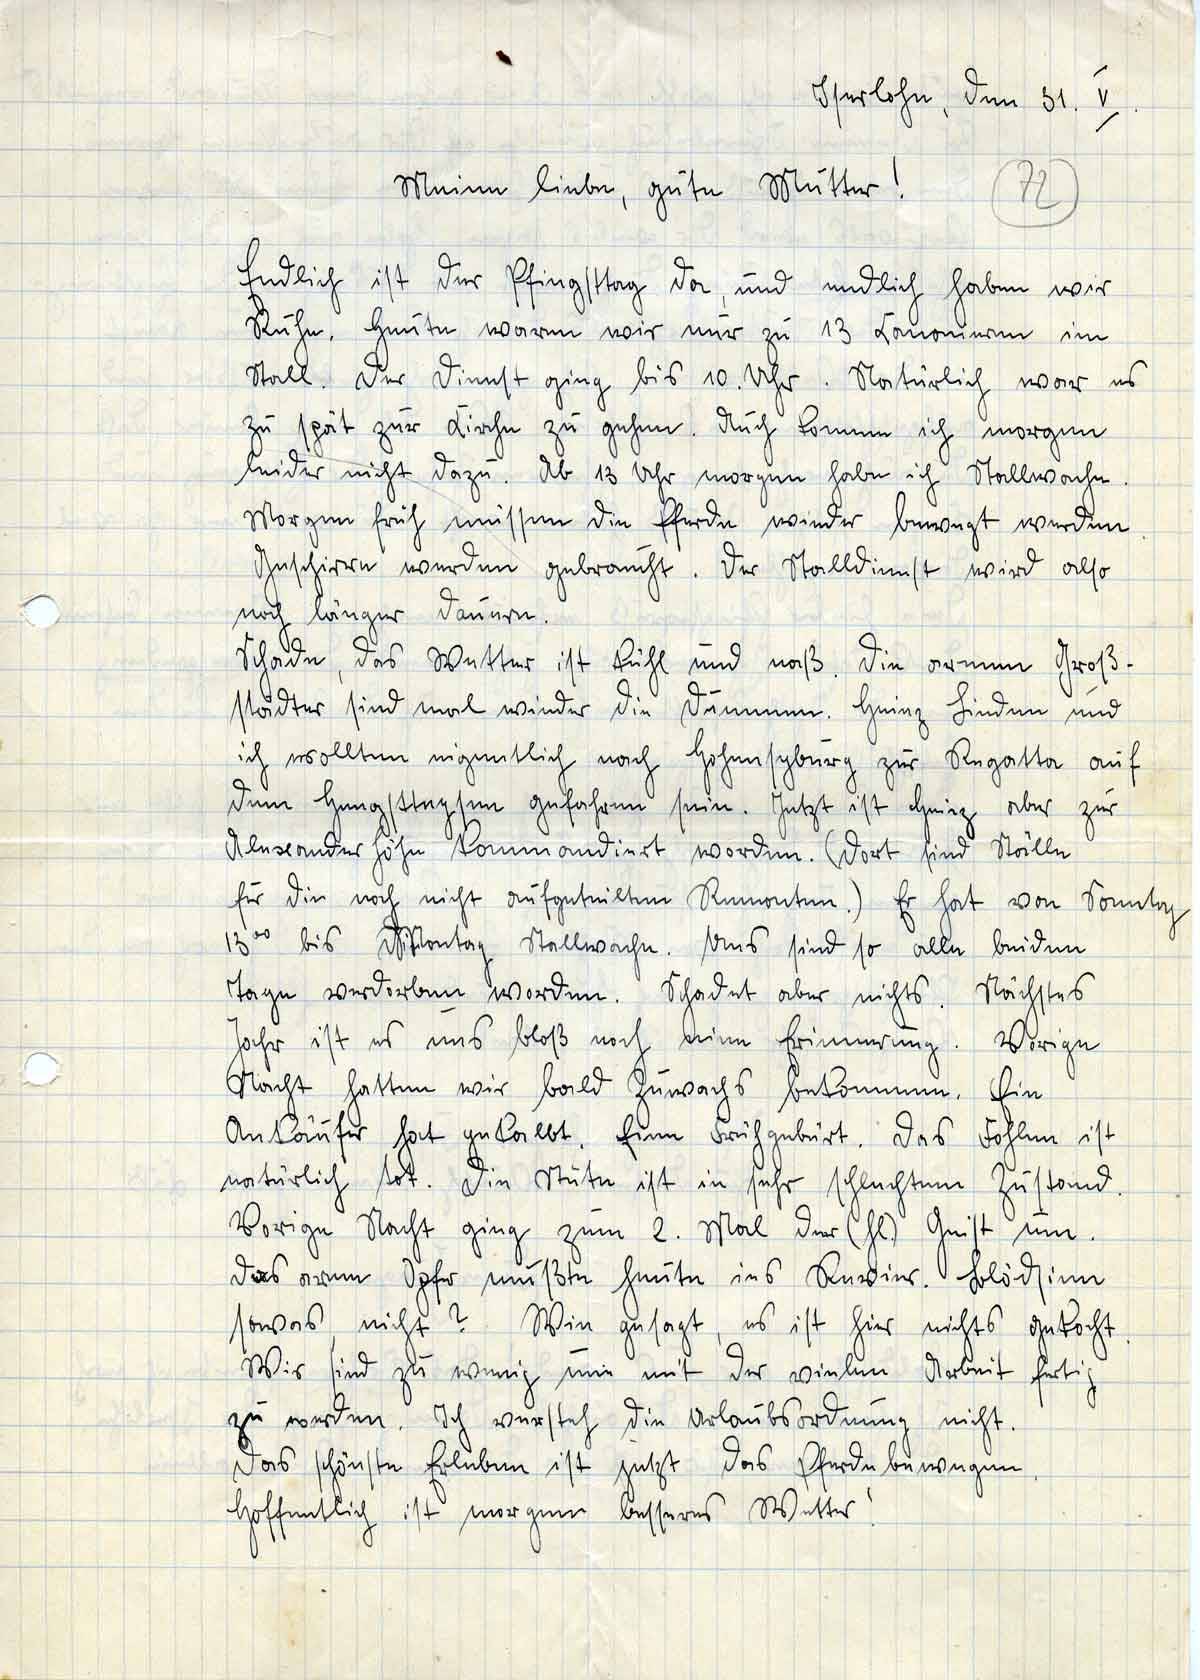 Iserlohn, den 31. V.
72
Meine liebe, gute Mutter!
Endlich ist der Pfingsttag da, und endlich haben wir
Ruhe. Heute waren wir nur zu 13 Kanonieren im
Stall. Der Dienst ging bis 10. Uhr. Natürlich war es
zu spät zur Kirche zu gehen. Auch komme ich morgen
leider nicht dazu. Ab 13 Uhr morgen habe ich Stallwache.
Morgen früh müssen die Pferde wieder bewegt werden.
Geschirre werden gebraucht. Der Stalldienst wird also
noch länger dauern.
Schade, das Wetter ist kühl und naß. Die armen Groß-
städter sind mal wieder die Dummen. Heinz Linden und
ich wollten eigentlich nach Hohensyburg zur Regatta auf
dem Hengsteysee gefahren sein. Jetzt ist Heinz aber zur
Alexanderhöhe kommandiert worden. (Dort sind Ställe
für die noch nicht aufgeteilten Remonten.) Er hat von Sonntag
13⁰⁰ bis Montag Stallwache. Uns sind so alle beiden
Tage verdorben worden. Schadet aber nichts. Nächstes
Jahr ist es uns bloß noch eine Erinnerung. Vorige
Nacht hatten wir bald Zuwachs bekommen. Ein
Ankäufer hat gekalbt. Eine Frühgeburt. Das Fohlen ist
natürlich tot. Die Stute ist in sehr schlechtem Zustand.
Vorige Nacht ging zum 2. Mal der (hl.) Geist um.
Das arme Opfer mußte heute ins Revier. Blödsinn
sowas, nicht? Wie gesagt, es ist hier nichts gekocht.
Wir sind zu wenig um mit der vielen Arbeit fertig
zu werden. Ich versteh die Urlaubsordnung nicht.
Das schönste Erleben ist jetzt das Pferdebewegen.
Hoffentlich ist morgen besseres Wetter!